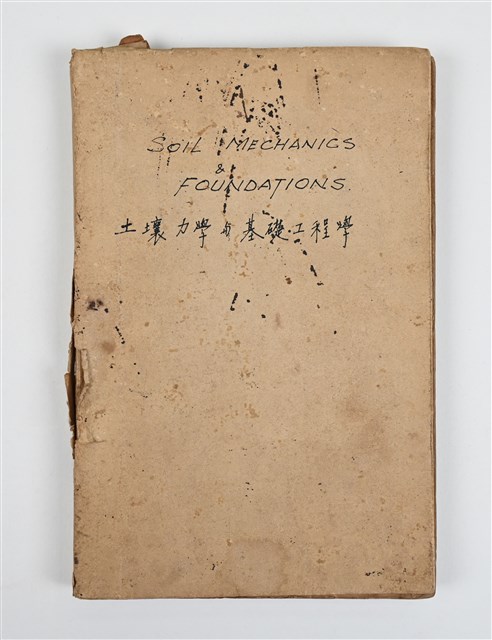 SOIL MECHANICS
&
FOUNDATIONS.
土壤力學与基礎工程學